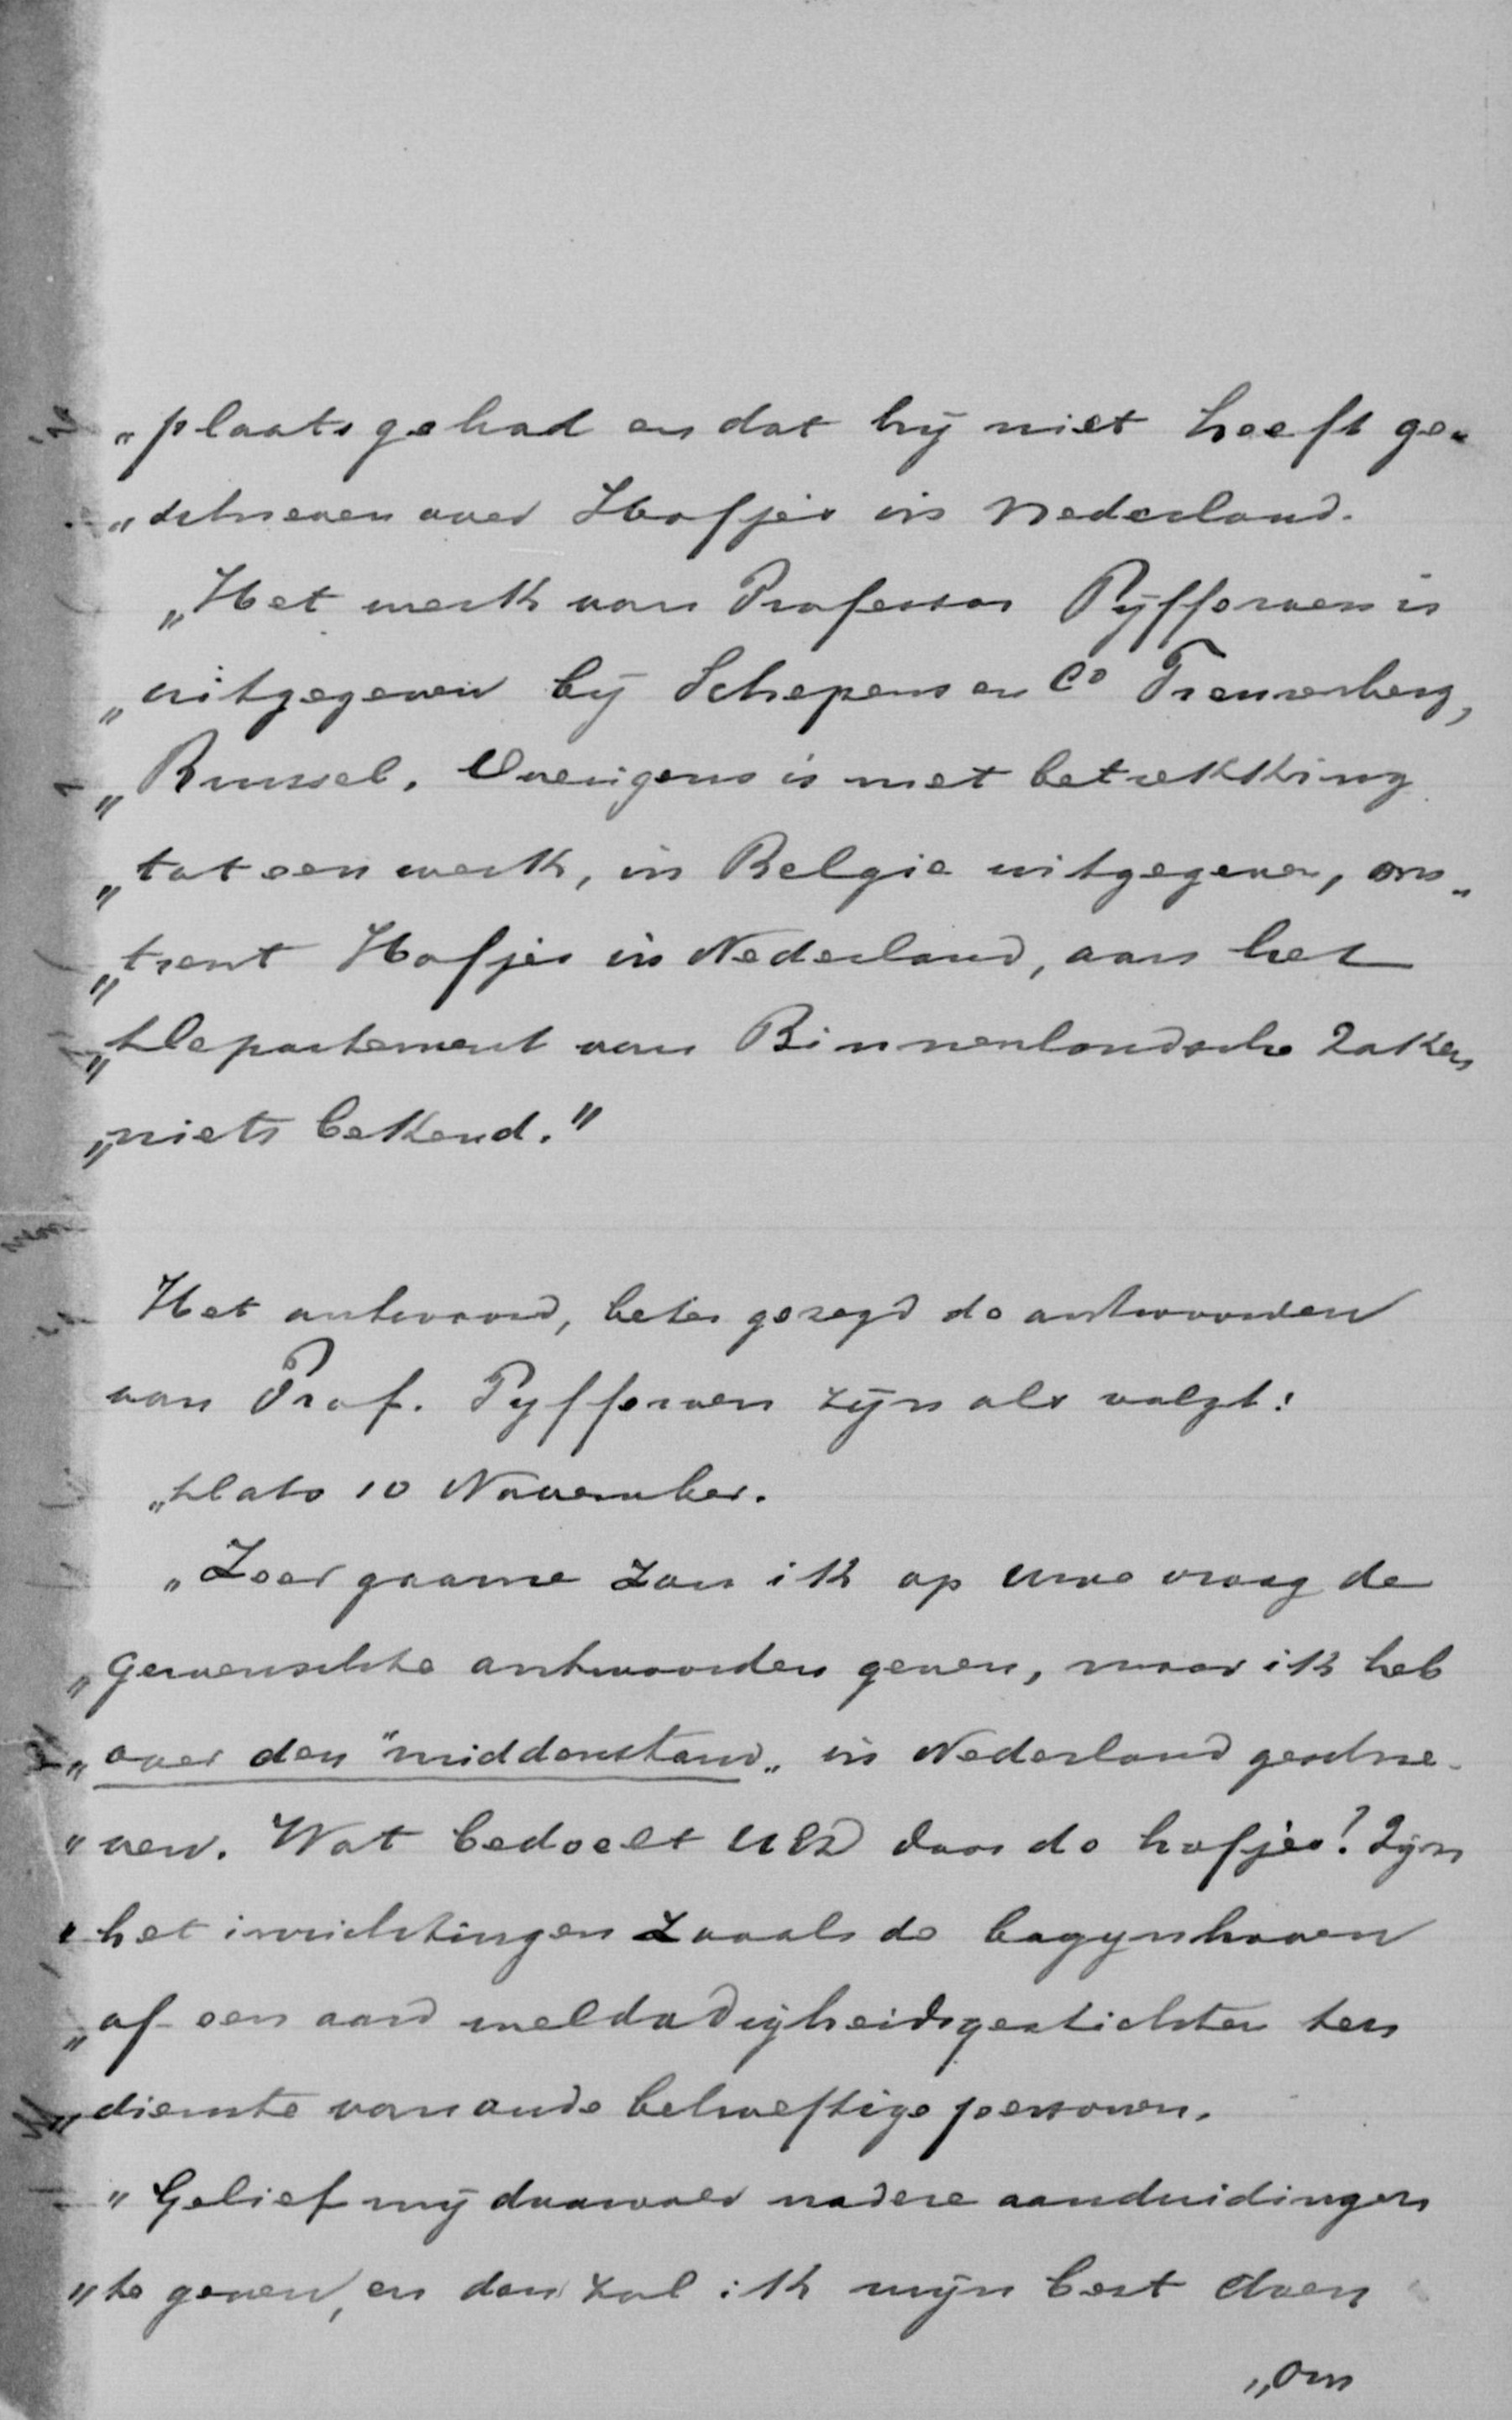 „plaats gehad en dat hij niet heeft ge-
„schreven over Hofjes in Nederland.
„Het werk van Professor Pyfferoen is
„uitgegeven bij Schepens en Co Treurenberg,
„Brussel. Overigens is met betrekking
„tot een werk, in Belgie uitgegeven, om-
„trent Hofjes in Nederland, aan het
„Departement van Binnenlandsche Zaken
„niets bekend."
Het antwoord, beter gezegd de antwoorden
van Prof. Pyfferoen zijn als volgt:
„Dato 10 November.
„Zeer gaarne zou ik op uwe vraag de
„gewenschte antwoorden geven, maar ik heb
„over den "middenstand„ in Nederland geschre-
„ven. Wat bedoelt UEd door de hofjes? Zijn
„het inrichtingen zooals de bagynhoven
„of een aard weldadigheidsgestichten ten
„dienste van oude behoeftige personen.
„Gelief mij daarover nadere aanduidingen
„te geven, en dan zal ik mijn best doen
„om